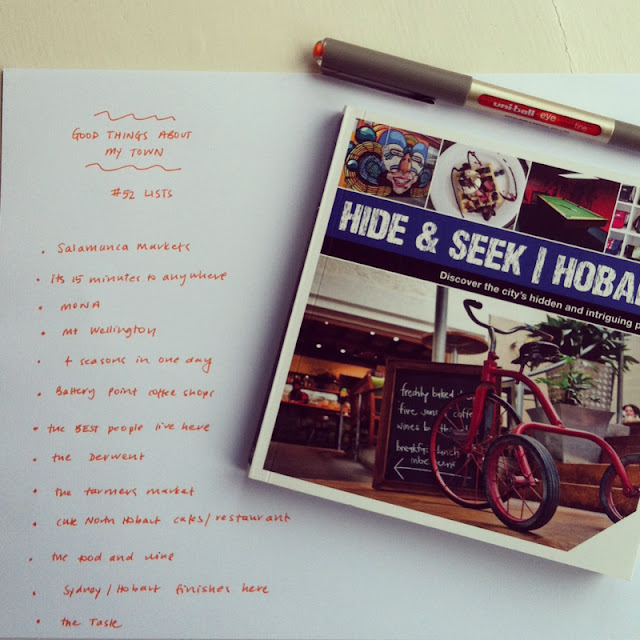 GOOD THINGS ABOUT
MY TOWN
#52 LISTS
• Salamanca Markets
• its 15 minutes to anywhere
• MONA
• Mt Wellington
• 4 seasons in one day
• Battery Point coffee shops
• the BEST people live here
• the Derwent
• the farmers market
• cute North Hobart cafes/restaurant
• the food and wine
• Sydney/Hobart finishes here
• the Taste
uni-ball eye
fine
HIDE & SEEK | HOBA
Discover the city's hidden and intriguing p
freshly baked
five senses coffee
wines by the
breakfast lunch